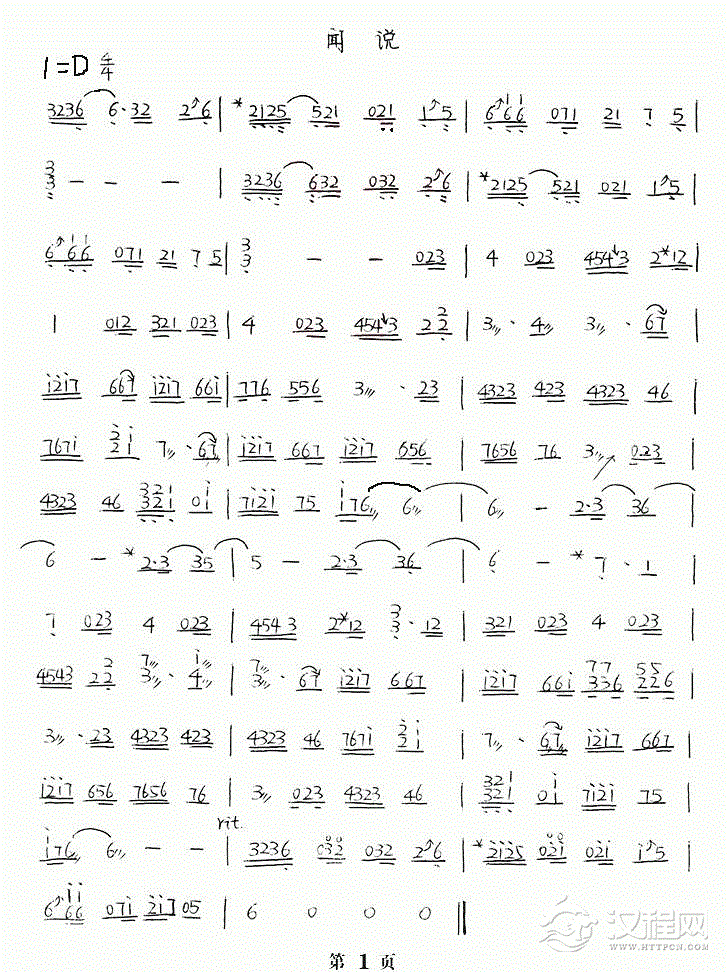 闻 说
1=D 4/4
3236 6·32 2↗6 | *2125 521 021 1↗5 | 6↗66 071 21 7 5 |
3 – – – | 3236 632 032 2↗6 | *2125 521 021 1↗5 |
6↗66 071 21 7 5 | 3 – – 023 | 4 023 454↓3 2*12 |
1 012 321 023 | 4 023 454↓3 22 | 3 · 4 3 · 67 |
i2i7 667 i2i7 66i | 776 556 3 · 23 | 4323 423 4323 46 |
767i 2i 7 · 67 | i2i7 667 i2i7 656 | 7656 76 3 023 |
4323 46 321 0i | 7i2i 75 i76 6 | 6 – 2·3 36 |
6 – *2·3 35 | 5 – 2·3 36 | 6 – *7 · 1 |
7 023 4 023 | 4543 2*12 3 · 12 | 321 023 4 023 |
4543 22 3 · 4 | 3 · 67 i2i7 667 | i2i7 66i 336 226 |
3 · 23 4323 423 | 4323 46 767i 2i | 7 · 67 i2i7 667 |
i2i7 656 7656 76 | 3 023 4323 46 | 321 0i 7i2i 75 |
rit.
i76 6 – – | 3236 032 032 2↗6 | *2i25 02i 02i i↗5 |
6↗66 07i 2i7 05 | 6 0 0 0 ‖
汉程网
HTTPCN.COM
第 1 页